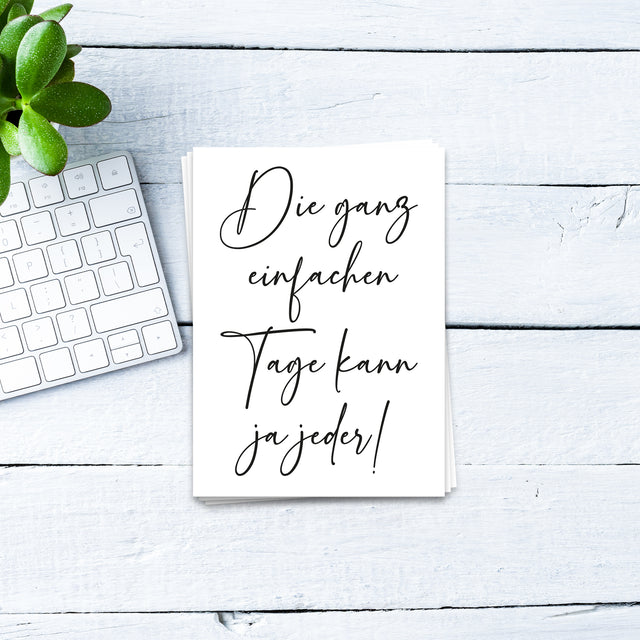 Die ganz
einfachen
Tage kann
ja jeder!